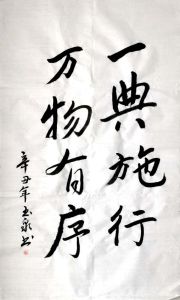 一典施行
万物有序
辛丑年玉泉书